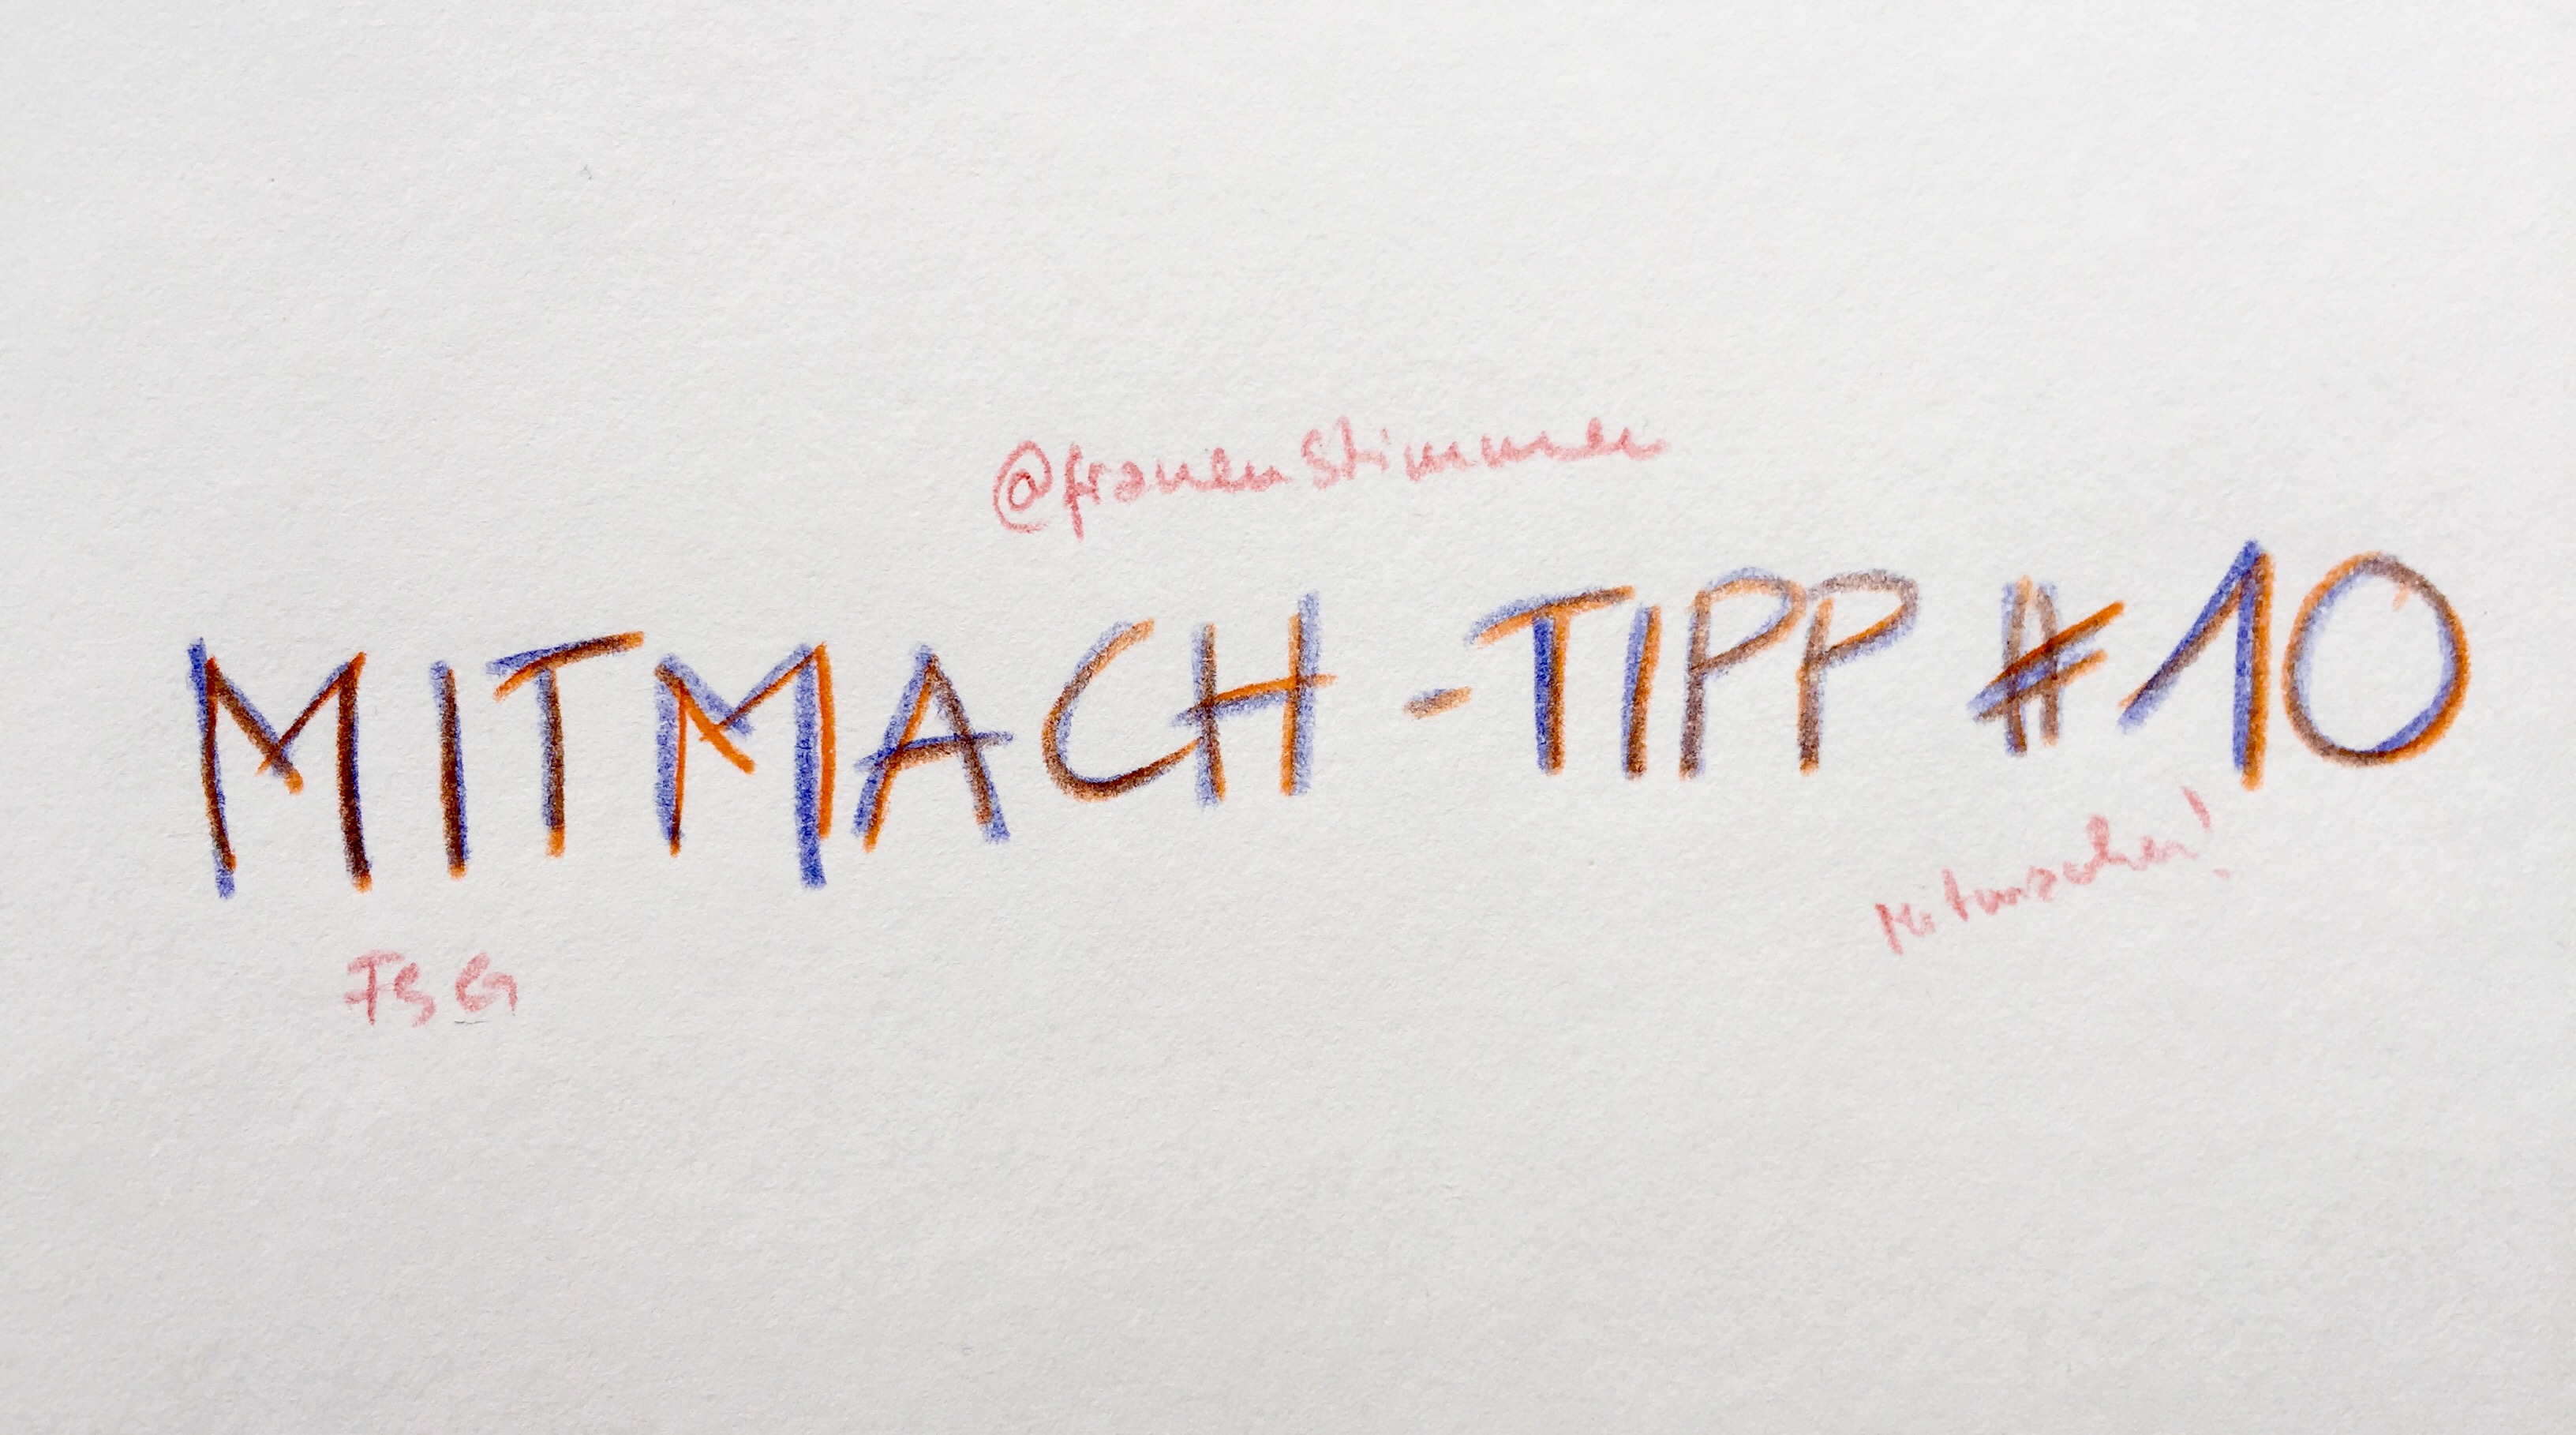 @frauenstimmen
MITMACH-TIPP #10
Mitmachen!
FSG